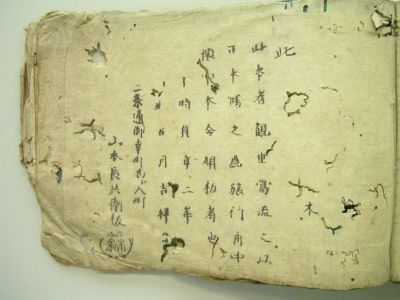 此
此本者観世當流之以
正本寫之為旅行舟中
懐
本令明杤者也
于時貞享二年
五月吉祥
二条通御幸町西へ入町
山本長兵衛板
木